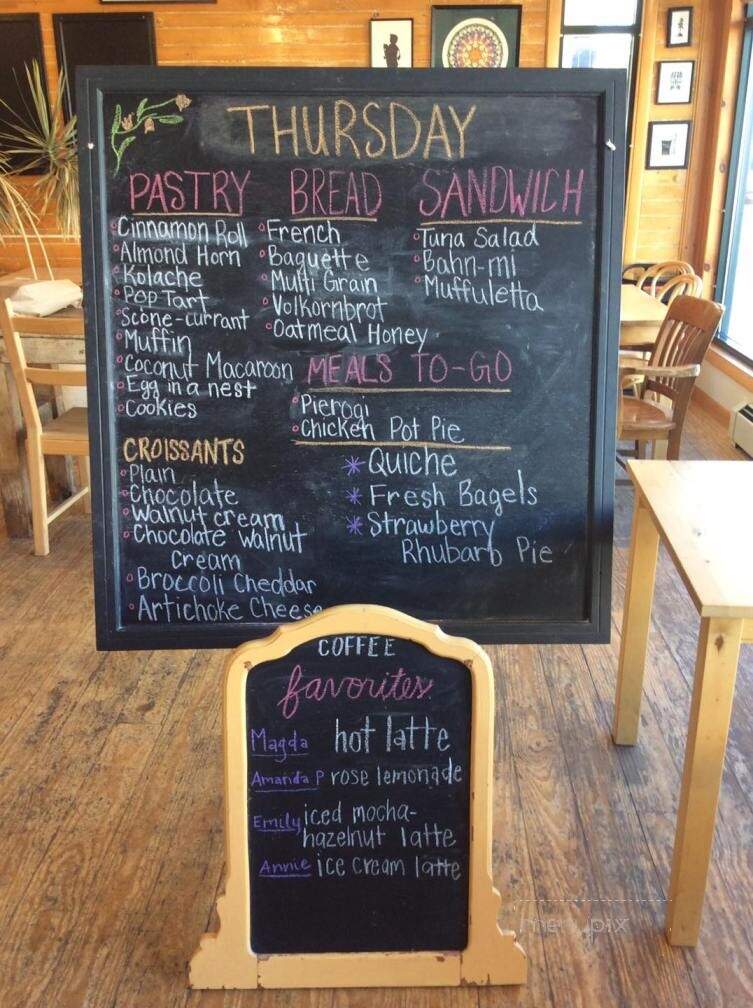 THURSDAY
PASTRY
Cinnamon Roll
Almond Horn
Kolache
Pop Tart
Scone-currant
Muffin
Coconut Macaroon
Egg in a nest
Cookies
CROISSANTS
Plain
Chocolate
Walnut cream
Chocolate Walnut
Cream
Broccoli Cheddar
Artichoke Cheese
BREAD
French
Baguette
Multi Grain
Volkornbrot
Oatmeal Honey
SANDWICH
Tuna Salad
Bahn-mi
Muffuletta
MEALS TO-GO
Pierogi
Chicken Pot Pie
* Quiche
* Fresh Bagels
* Strawberry
Rhubarb Pie
COFFEE
favorites
Magda hot latte
Amanda P rose lemonade
Emily iced mocha-
hazelnut latte
Annie ice cream latte
menupix